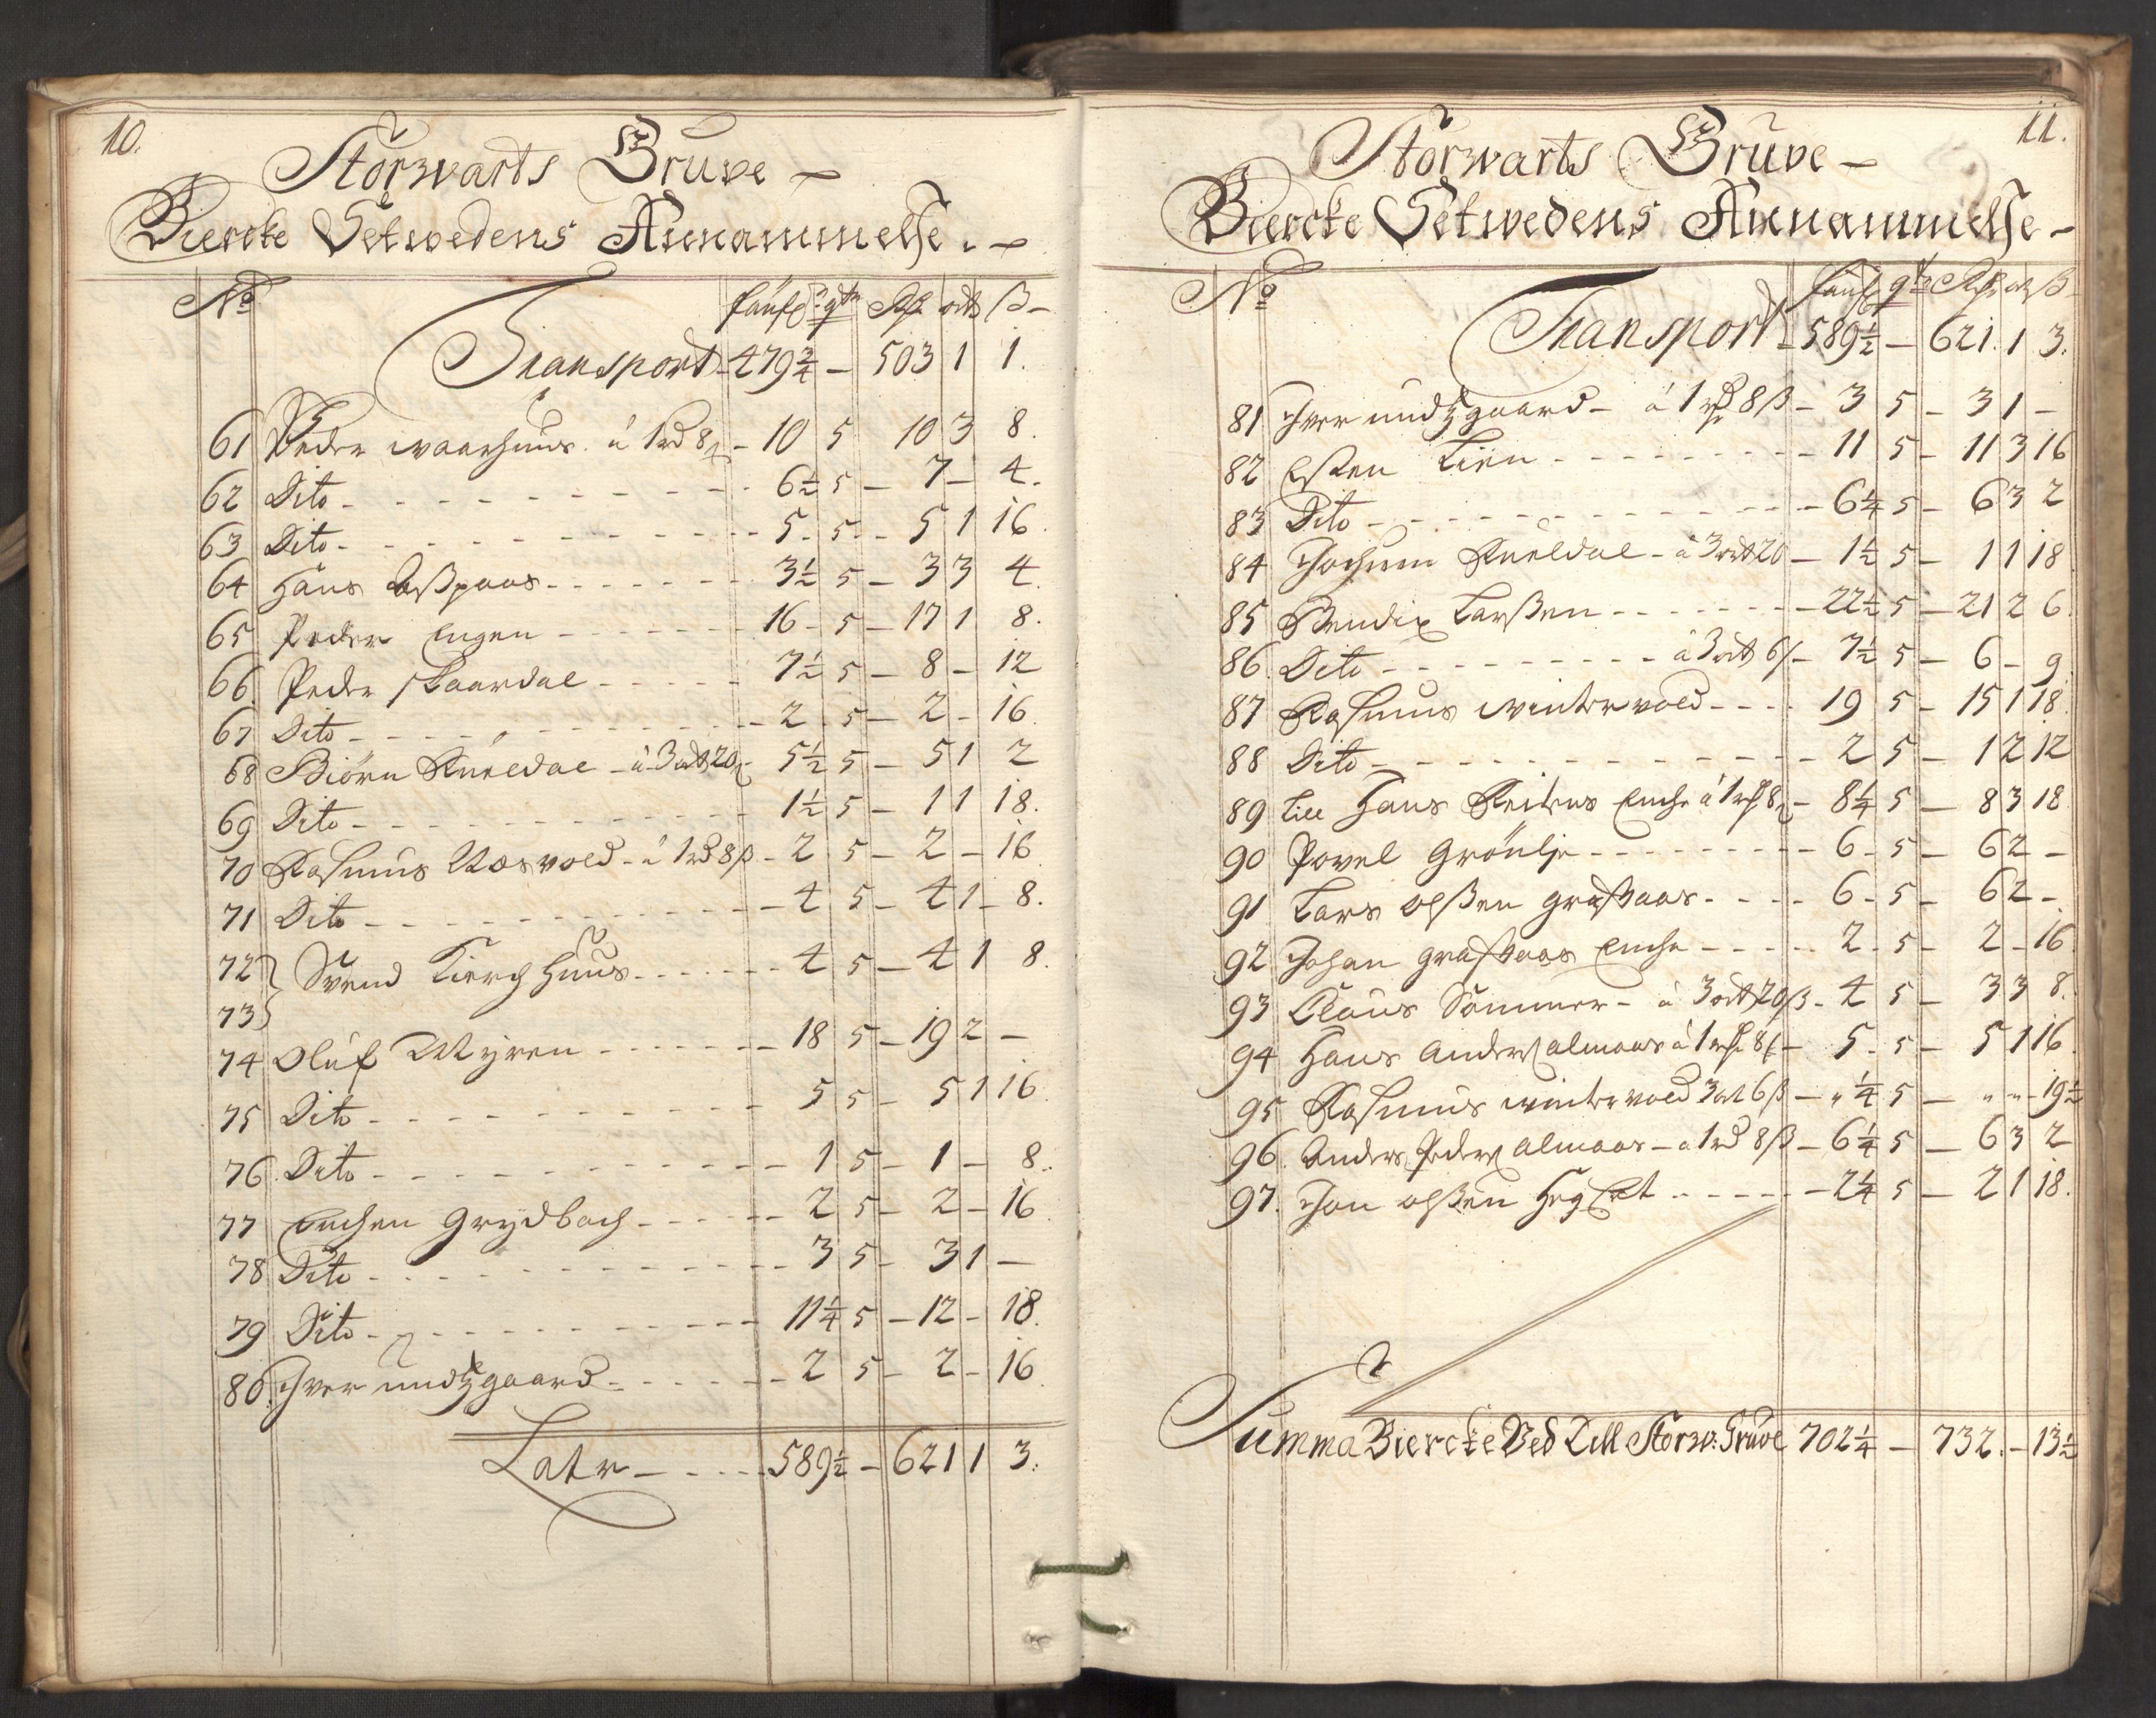 10.
Storwarts Gruve
Biercke Setwedens Annammelse.
No faufl: qtr Rdr ort ß
Transport 479¾ - 503 1 1.
61 Peder waarhuus. á 1 rd 8ß - 10 5 10 3 8.
62 Dito - 6½ 5 - 7 - 4.
63 Dito - 5. 5 - 5 1 16.
64 Hans - 3½ 5 - 3 3 4.
65 Peder Engen - 16 - 5 - 17 1 8.
66 Peder skaardal - 7½ 5 - 8 - 12
67 Dito - 2 - 5 - 2 - 16.
68 Biörn Rueldal - á 3 ort 20ß 5½ 5 - 5 1 2
69 Dito - 1½ 5 - 1 1 18.
70 Rasmus Aasvold - á 1 rd 8ß - 2 5 - 2 - 16.
71 Dito - 4 5 - 4 1 - 8.
72 Svend Kierchhuus - 4 5 - 4 1 8.
73
74 Oluf Myren - 18 5 - 19 2 -
75 Dito - 5 5 - 5 1 16.
76. Dito - 1 5 - 1 - 8.
77 Enchen Grydbach - 2 5 - 2 - 16
78 Dito - 3 5 - 3 1 -
79 Dito - 11¼ 5 - 12 - 18.
80. Iver undsgaard - 2 5 - 2 - 16.
Latr - 589½ - 621 1 3.
11.
Storwarts Gruve -
Biercke Setwedens Annammelse -
No faufl qtr Rdr ort ß
Transport - 589½ - 621. 1 3.
81 Iver undsgaard - á 1 rd 8ß - 3 5 - 3 1 -
82 Esten Lien - 11 5 - 11 3 16
83 Dito - 6¼ 5 - 6 3 2
84 Jochum Rueldal - á 3 ort 20 - 1½ 5 - 1 1 18
85 Bendix Larßen - 22½ 5 - 21 2 6.
86. Dito - á 3 ort 6ß - 7½ 5 - 6 - 9
87 Rasmus wintervold - 19 5 - 15 1 18.
88 Dito - 2 5 - 1 2 12
89 till Hans Reitens Enche á 1 rd 8ß - 8¼ 5 - 8 3 18
90 Povel Grönlje - 6 - 5 - 6 2 -
91 Lars olßen graftaas - 6 - 5 - 6 2 -
92 Johan graftaas Enche - 2 - 5 - 2 - 16
93 Claus Sommer - á 3 ort 20ß - 4 5 - 3 3 8.
94 Hans anders almaas á 1 rd 8ß - 5. 5 - 5 1 16.
95 Rasmus wintervold 3 ort 6ß - " ¼ 5 - " " - 19½
96. Anders Peders almaas - á 1 rd 8ß - 6¼ 5 - 6 3 2
97. Jon olßen - 2¼ 5 - 2 1 18.
Summa Biercke Ved Till Storw: Gruve 702¼ - 732. - 13½